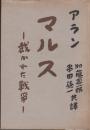 アラン
マルス
―裁かれた戦争―
加藤昇一郎
串田孫一共譯